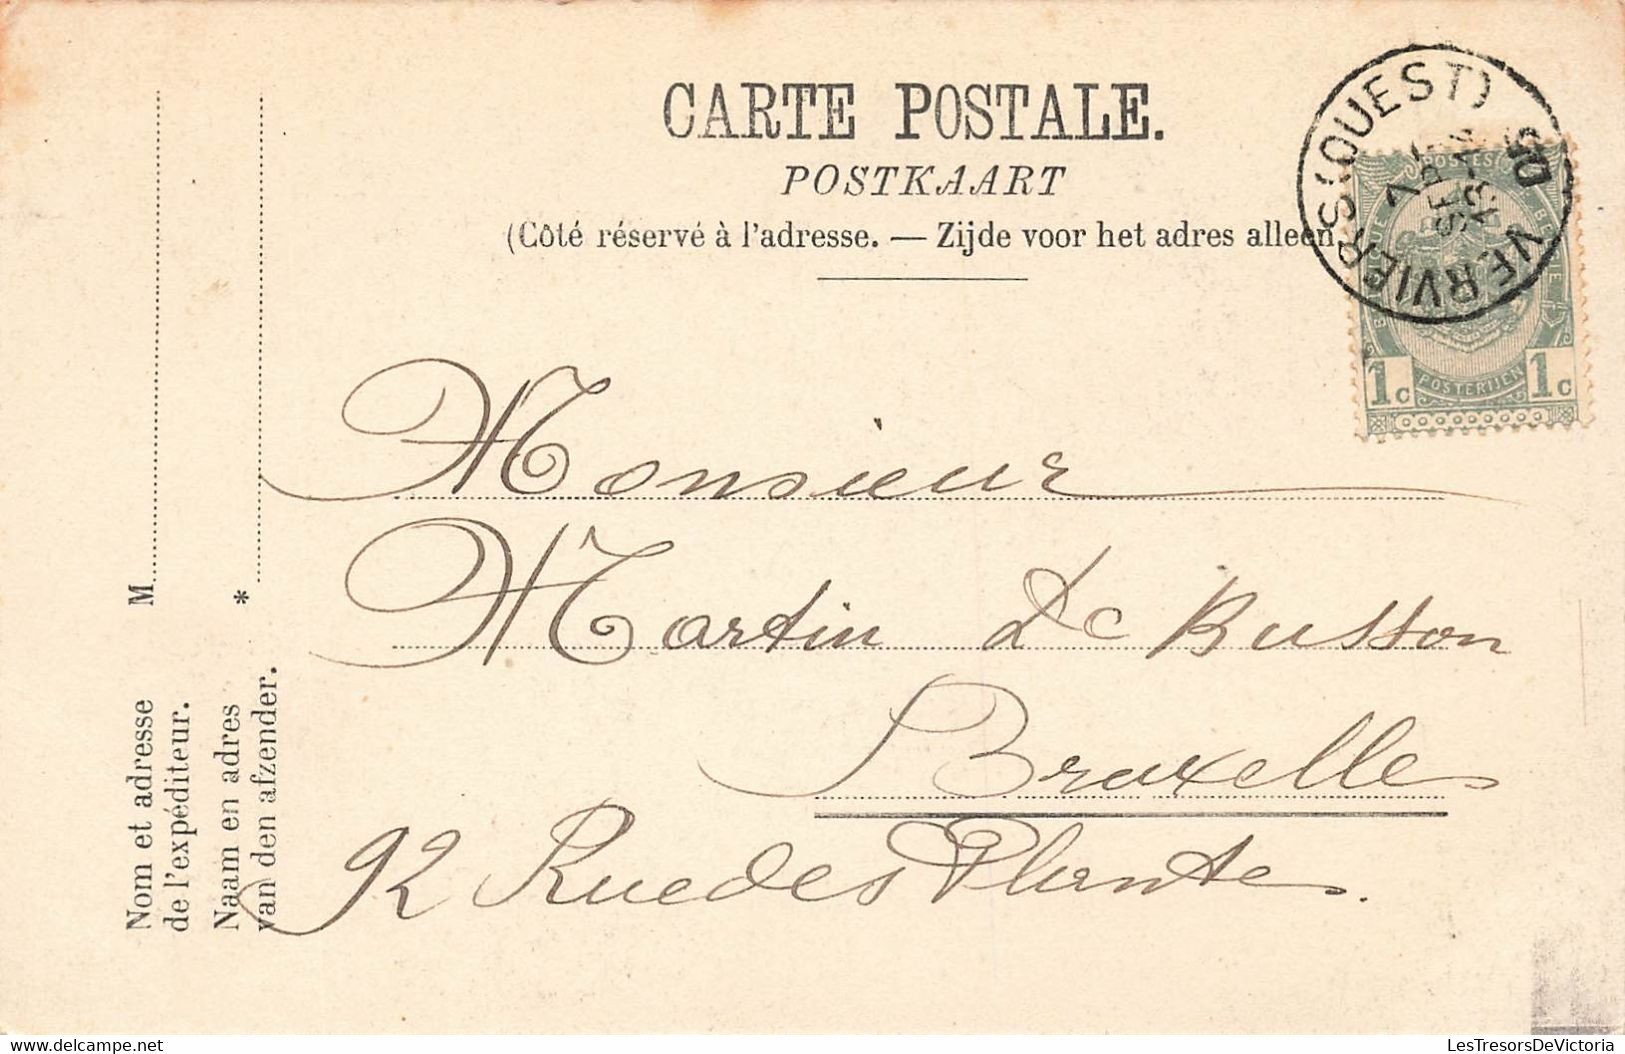 CARTE POSTALE.
POSTKAART
(Côté réservé à l'adresse. — Zijde voor het adres alleen
VERVIERS (OUEST)
SEPT
05
POSTES
BELGIQUE
BELGIË
1c POSTERIJEN 1c
Monsieur
Martin De Busson
Bruxelles
92 Rue des Plantes.
M
*
Nom et adresse
de l'expéditeur.
Naam en adres
van den afzender.
delcampe.net
LesTresorsDeVictoria